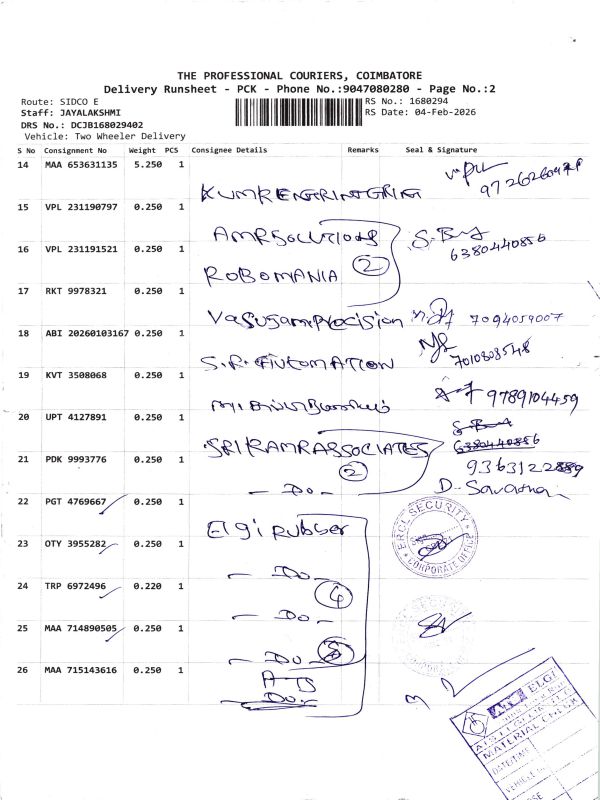 THE PROFESSIONAL COURIERS, COIMBATORE
Delivery Runsheet - PCK - Phone No.:9047080280 - Page No.:2
Route: SIDCO E
RS No.: 1680294
Staff: JAYALAKSHMI
RS Date: 04-Feb-2026
DRS No.: DCJB168029402
Vehicle: Two Wheeler Delivery
S No Consignment No Weight PCS Consignee Details Remarks Seal & Signature
14 MAA 653631135 5.250 1
15 VPL 231190797 0.250 1
AMR SOLUTIONS
6380440856
16 VPL 231191521 0.250 1
ROBOMANIA 2
17 RKT 9978321 0.250 1
Vasugam Precision 7094059007
18 ABI 20260103167 0.250 1
S.R. AUTOMATION 7010808548
19 KVT 3508068 0.250 1
9789104459
20 UPT 4127891 0.250 1
SRI RAMR ASSOCIATES 6380440856
21 PDK 9993776 0.250 1
2 9363122889
- Do - D. Savarna
22 PGT 4769667 0.250 1
Elgi Rubber
ERCL SECURITY
CORPORATE OFFICE
23 OTY 3955282 0.250 1
- Do -
24 TRP 6972496 0.220 1
4
- Do -
25 MAA 714890505 0.250 1
- Do -
26 MAA 715143616 0.250 1
ATS
- Do -
ELGI
MATERIAL CHECK
DATE/TIME
VEHICLE